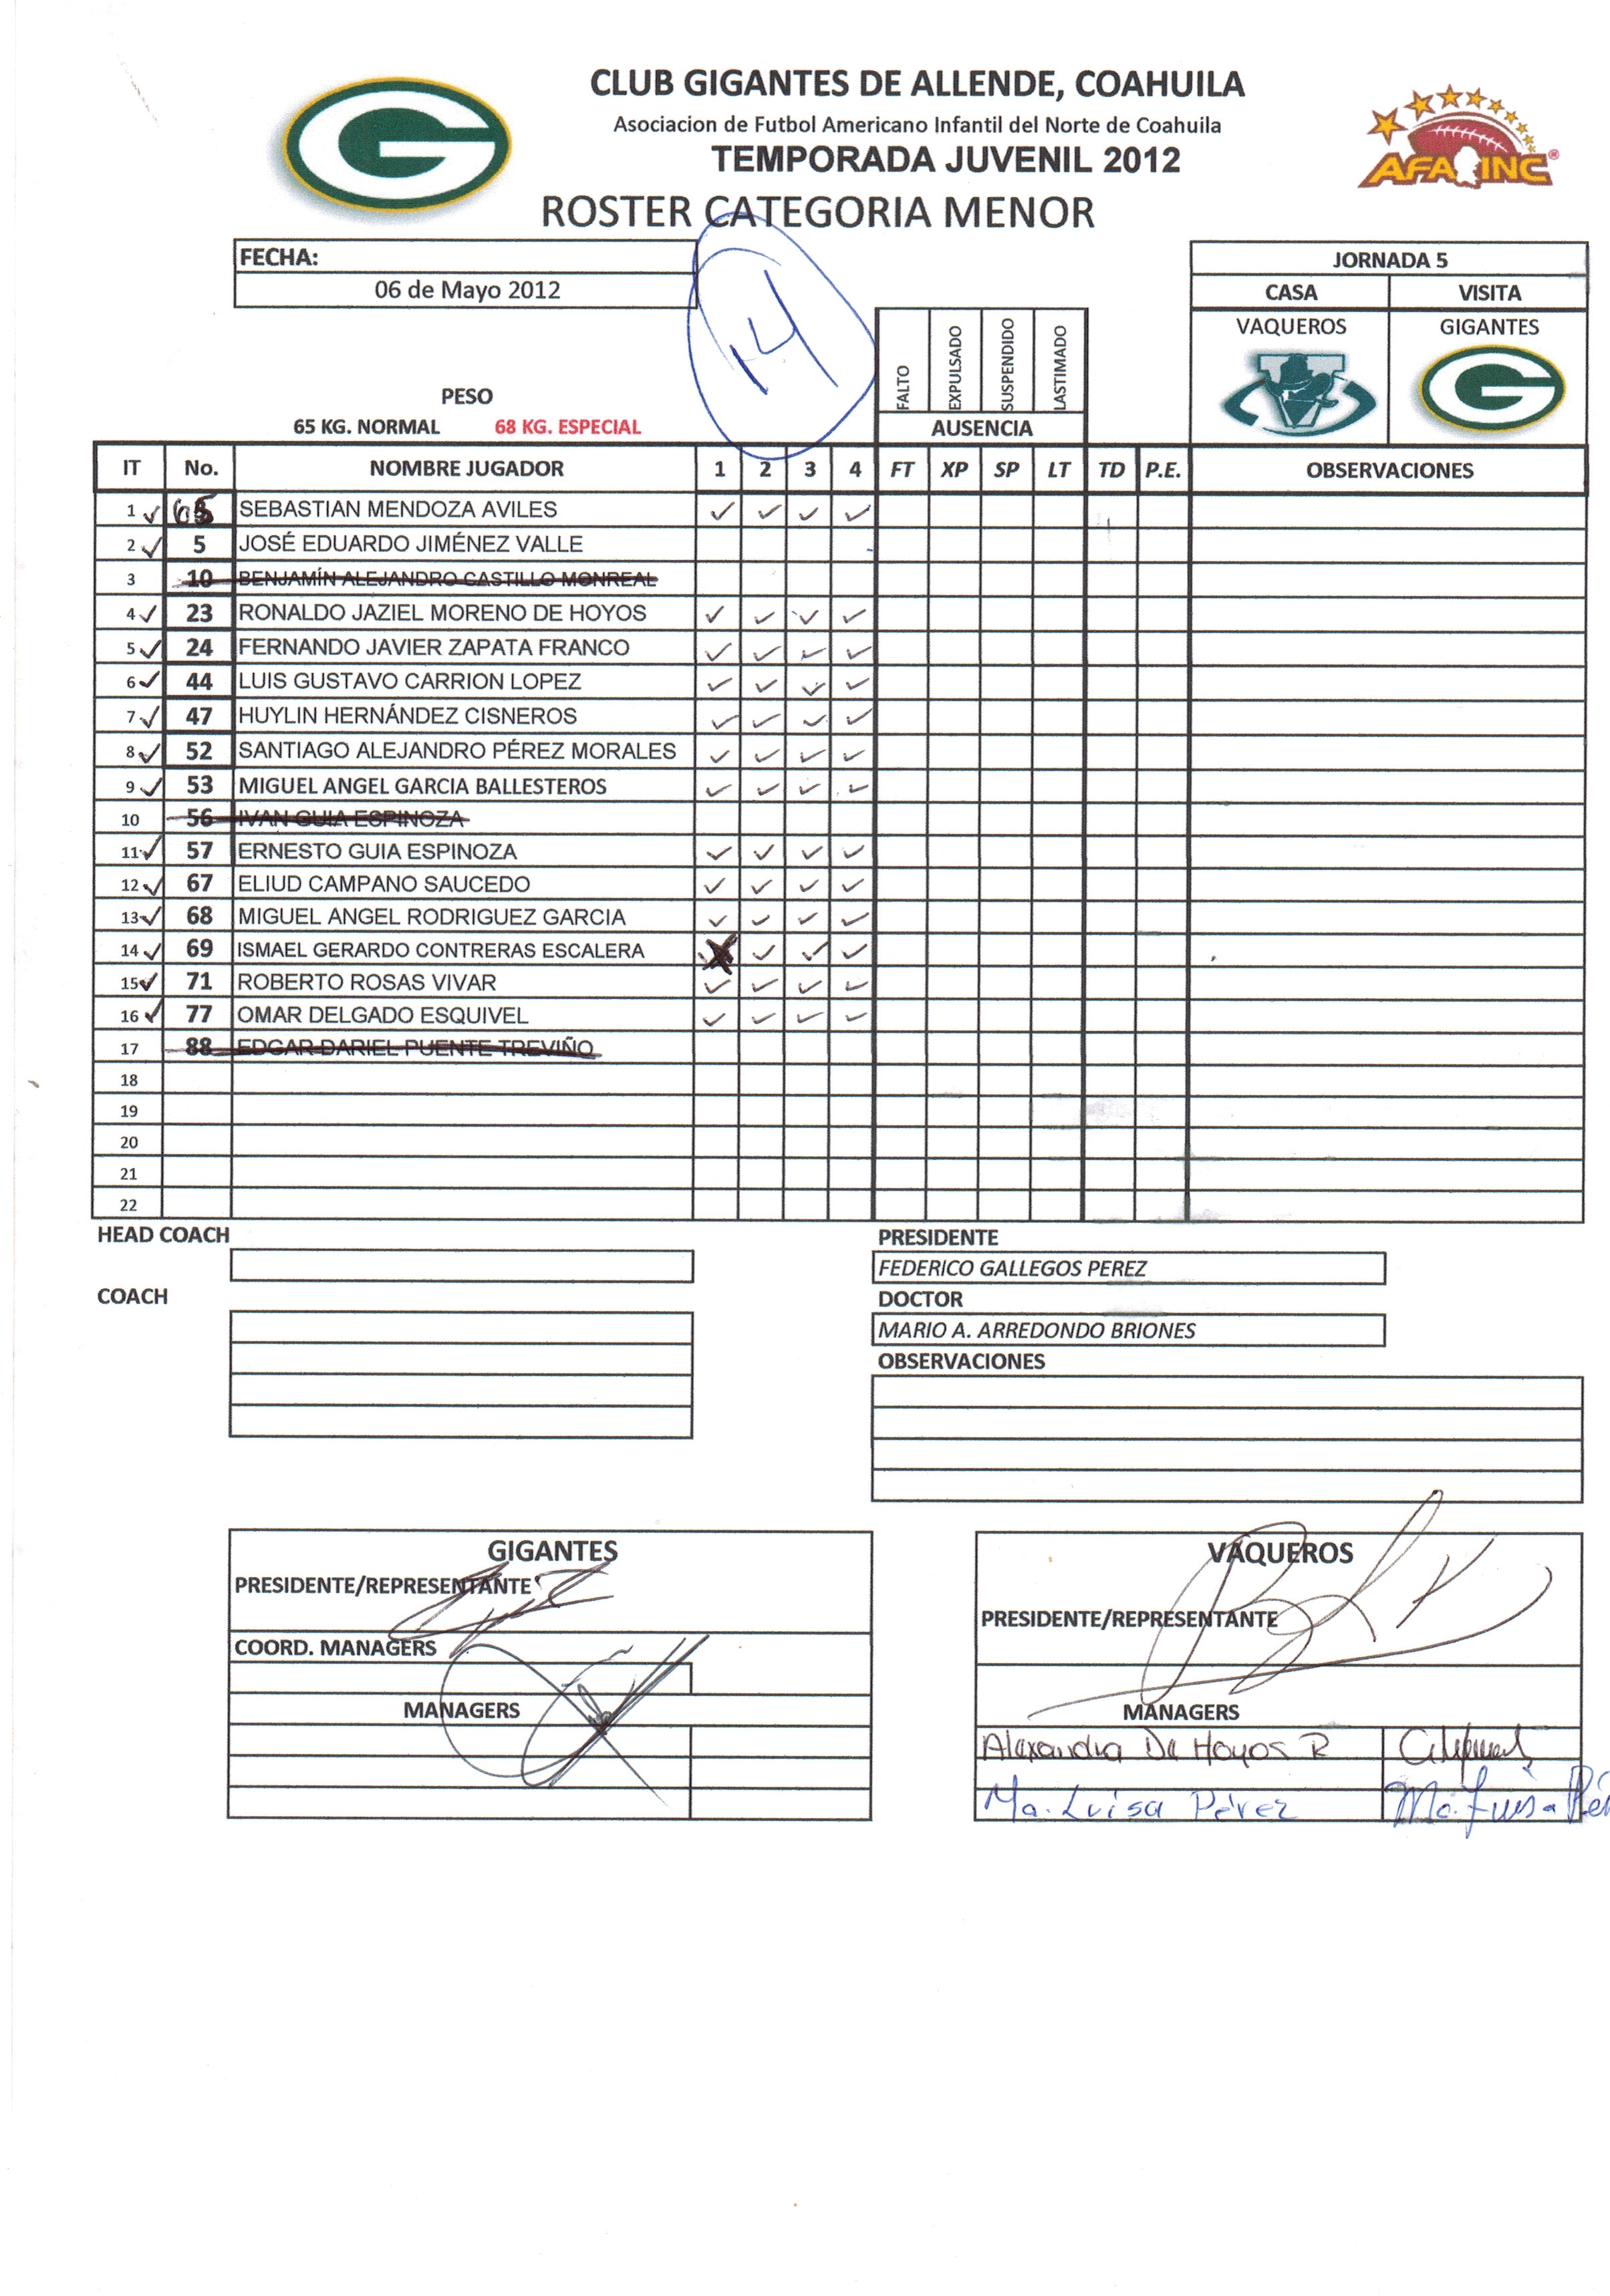 CLUB GIGANTES DE ALLENDE, COAHUILA
Asociacion de Futbol Americano Infantil del Norte de Coahuila
TEMPORADA JUVENIL 2012
ROSTER CATEGORIA MENOR
G
AFAINC®
FECHA:
06 de Mayo 2012
14
JORNADA 5
CASA VISITA
VAQUEROS GIGANTES
V G
PESO
65 KG. NORMAL 68 KG. ESPECIAL
FALTO EXPULSADO SUSPENDIDO LASTIMADO
AUSENCIA
IT No. NOMBRE JUGADOR 1 2 3 4 FT XP SP LT TD P.E. OBSERVACIONES
1 ✓ SEBASTIAN MENDOZA AVILES ✓ ✓ ✓ ✓
2 ✓ 5 JOSÉ EDUARDO JIMÉNEZ VALLE
3 10 BENJAMÍN ALEJANDRO CASTILLO MONREAL
4 ✓ 23 RONALDO JAZIEL MORENO DE HOYOS ✓ ✓ ✓ ✓
5 ✓ 24 FERNANDO JAVIER ZAPATA FRANCO ✓ ✓ ✓ ✓
6 ✓ 44 LUIS GUSTAVO CARRION LOPEZ ✓ ✓ ✓ ✓
7 ✓ 47 HUYLIN HERNÁNDEZ CISNEROS ✓ ✓ ✓ ✓
8 ✓ 52 SANTIAGO ALEJANDRO PÉREZ MORALES ✓ ✓ ✓ ✓
9 ✓ 53 MIGUEL ANGEL GARCIA BALLESTEROS ✓ ✓ ✓ ✓
10 56 IVAN GUIA ESPINOZA
11 ✓ 57 ERNESTO GUIA ESPINOZA ✓ ✓ ✓ ✓
12 ✓ 67 ELIUD CAMPANO SAUCEDO ✓ ✓ ✓ ✓
13 ✓ 68 MIGUEL ANGEL RODRIGUEZ GARCIA ✓ ✓ ✓ ✓
14 ✓ 69 ISMAEL GERARDO CONTRERAS ESCALERA ✓ ✓ ✓
15 ✓ 71 ROBERTO ROSAS VIVAR ✓ ✓ ✓ ✓
16 ✓ 77 OMAR DELGADO ESQUIVEL ✓ ✓ ✓ ✓
17 88 EDGAR DARIEL PUENTE TREVIÑO
18
19
20
21
22
HEAD COACH
COACH
PRESIDENTE
FEDERICO GALLEGOS PEREZ
DOCTOR
MARIO A. ARREDONDO BRIONES
OBSERVACIONES
GIGANTES
PRESIDENTE/REPRESENTANTE
COORD. MANAGERS
MANAGERS
VAQUEROS
PRESIDENTE/REPRESENTANTE
MANAGERS
Alexandra De Hoyos R
Ma. Luisa Pérez Ma. Luisa Pé